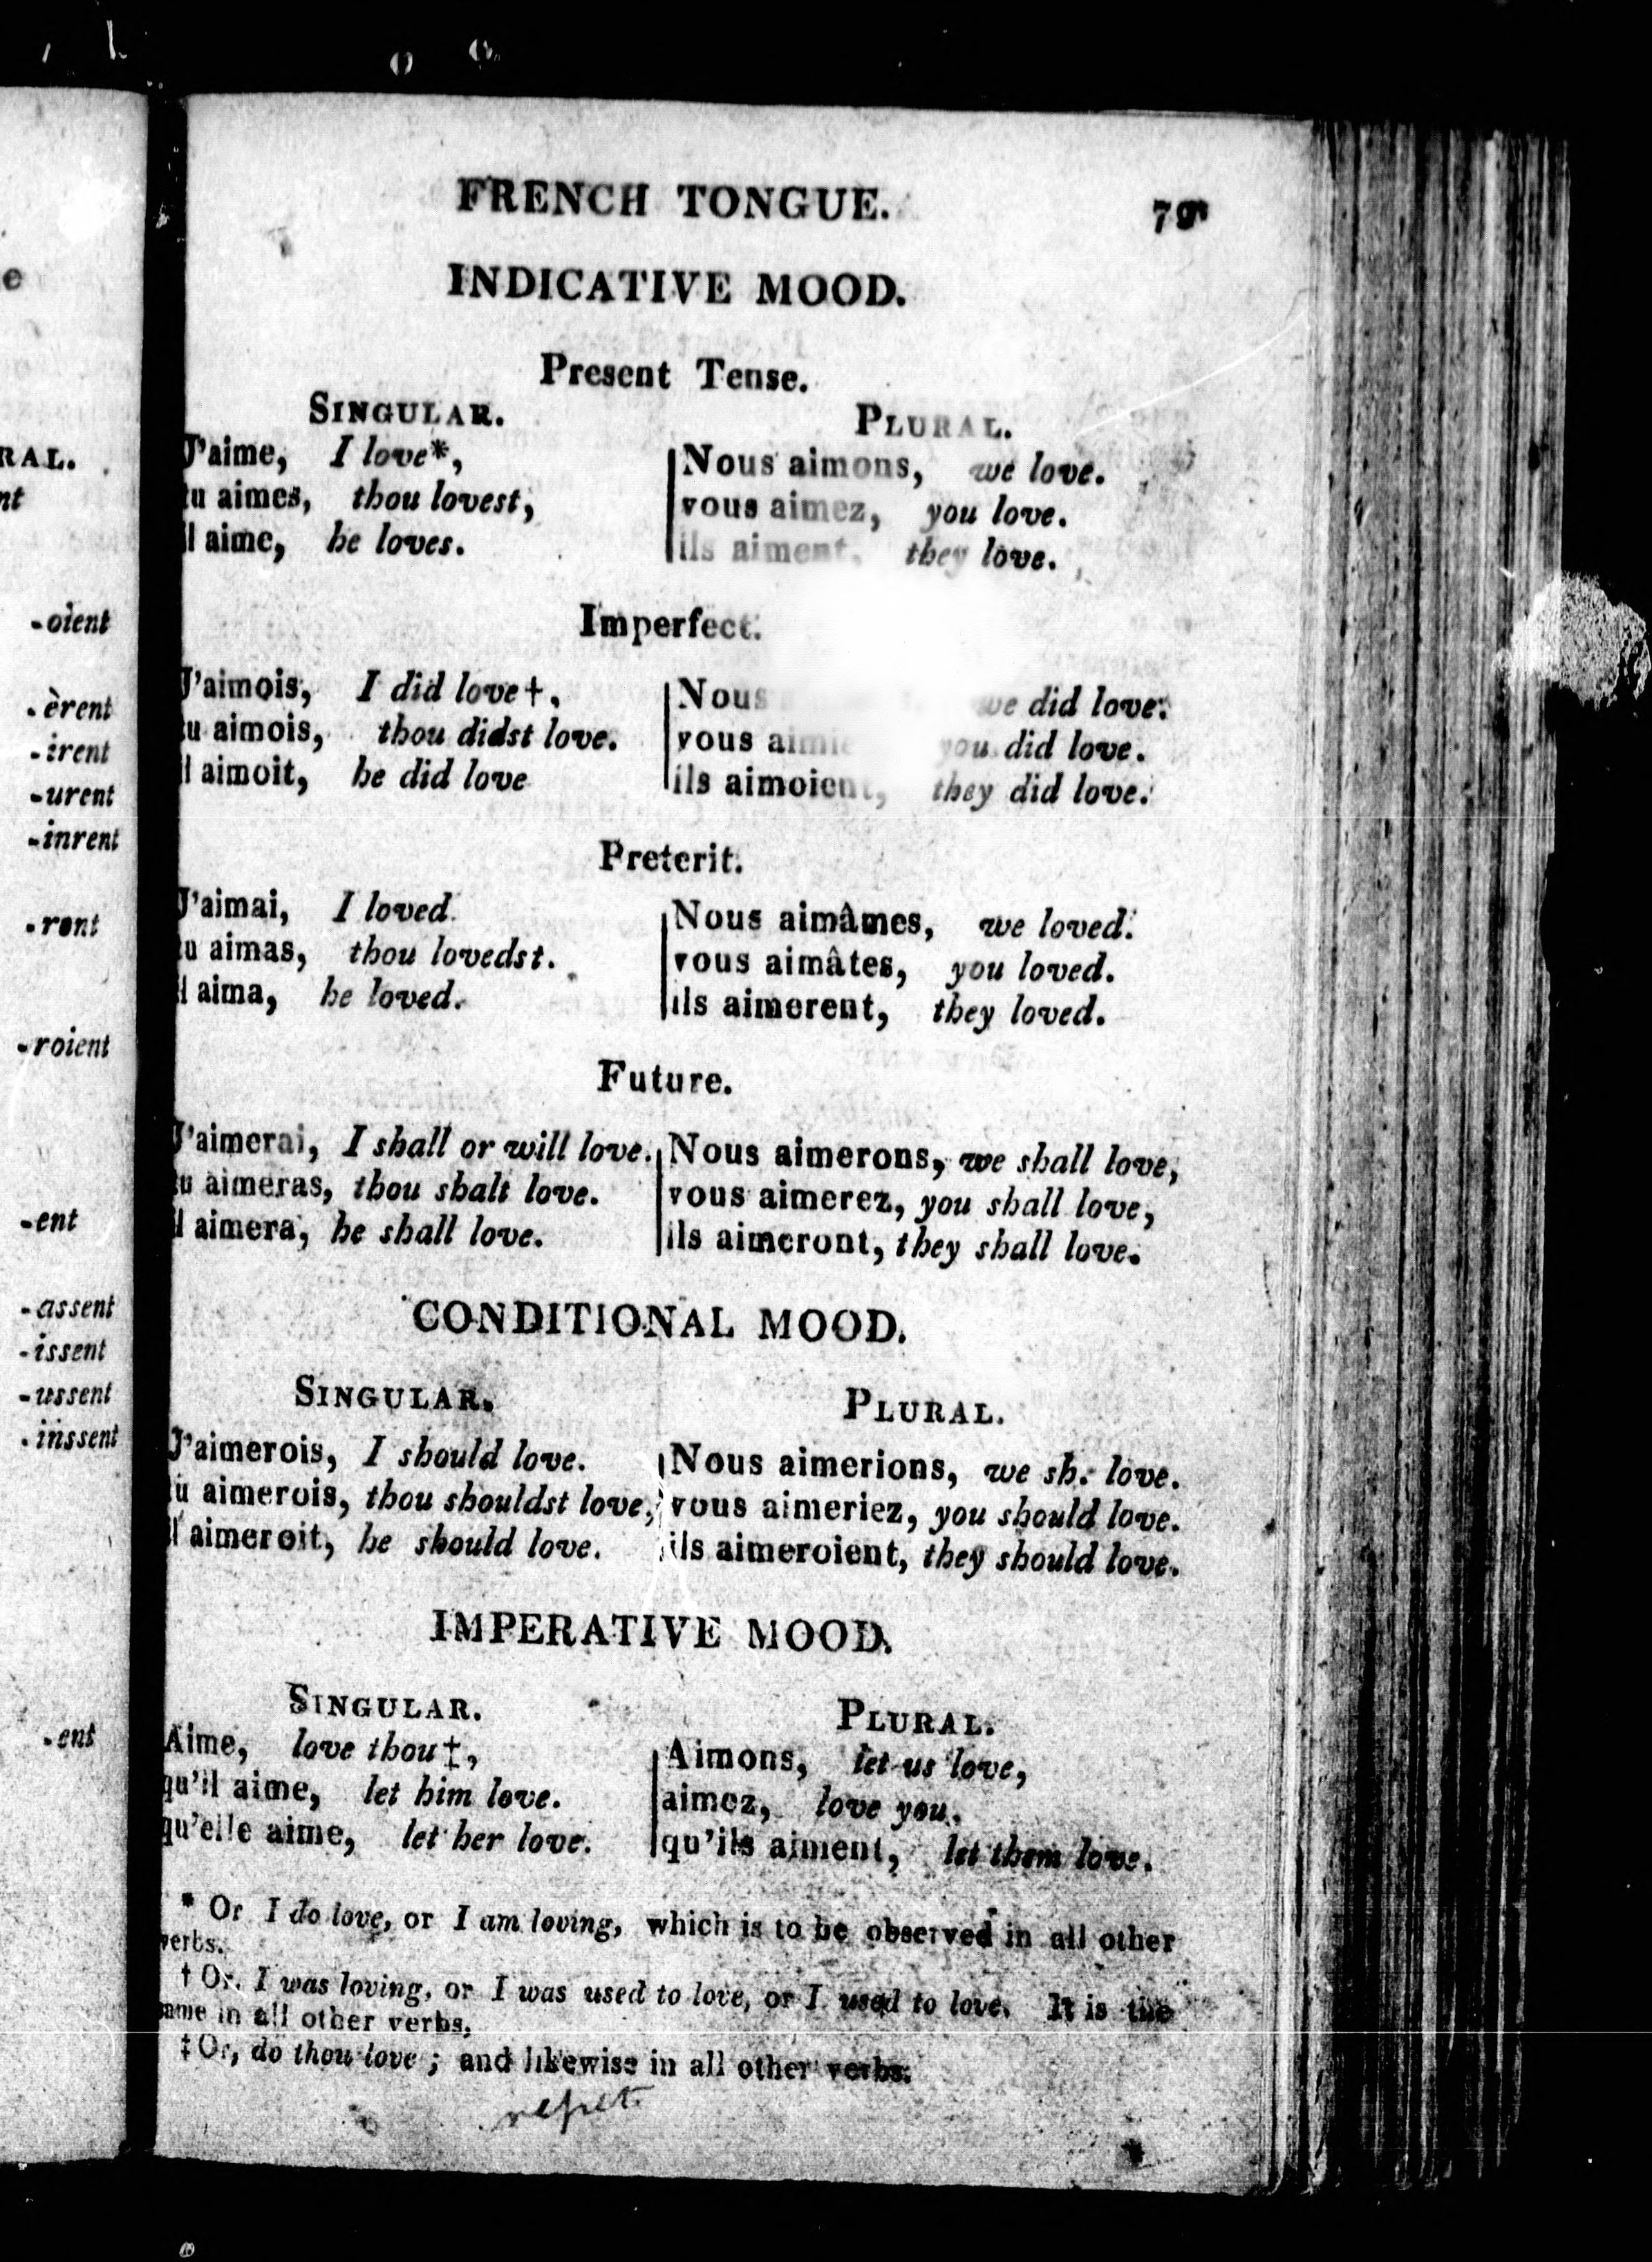 FRENCH TONGUE. 79
INDICATIVE MOOD.
Present Tense.
SINGULAR. PLURAL.
J'aime, I love*, Nous aimons, we love.
tu aimes, thou lovest, vous aimez, you love.
il aime, he loves. ils aiment, they love.
Imperfect.
J'aimois, I did love†, Nous we did love.
tu aimois, thou didst love. vous you did love.
il aimoit, he did love ils aimoient, they did love.
Preterit.
J'aimai, I loved. Nous aimâmes, we loved.
tu aimas, thou lovedst. vous aimâtes, you loved.
il aima, he loved. ils aimerent, they loved.
Future.
J'aimerai, I shall or will love. Nous aimerons, we shall love,
tu aimeras, thou shalt love. vous aimerez, you shall love,
il aimera, he shall love. ils aimeront, they shall love.
CONDITIONAL MOOD.
SINGULAR. PLURAL.
J'aimerois, I should love. Nous aimerions, we sh. love.
tu aimerois, thou shouldst love, vous aimeriez, you should love.
il aimeroit, he should love. ils aimeroient, they should love.
IMPERATIVE MOOD.
SINGULAR. PLURAL.
Aime, love thou‡, Aimons, let us love,
qu'il aime, let him love. aimez, love you.
qu'elle aime, let her love. qu'ils aiment, let them love.
* Or I do love, or I am loving, which is to be observed in all other
verbs.
† Or, I was loving, or I was used to love, or I used to love. It is the
same in all other verbs.
‡ Or, do thou love; and likewise in all other verbs.
RAL.
nt
-oient
-èrent
-irent
-urent
-inrent
-ront
-roient
-ent
-assent
-issent
-ussent
-inssent
-ent